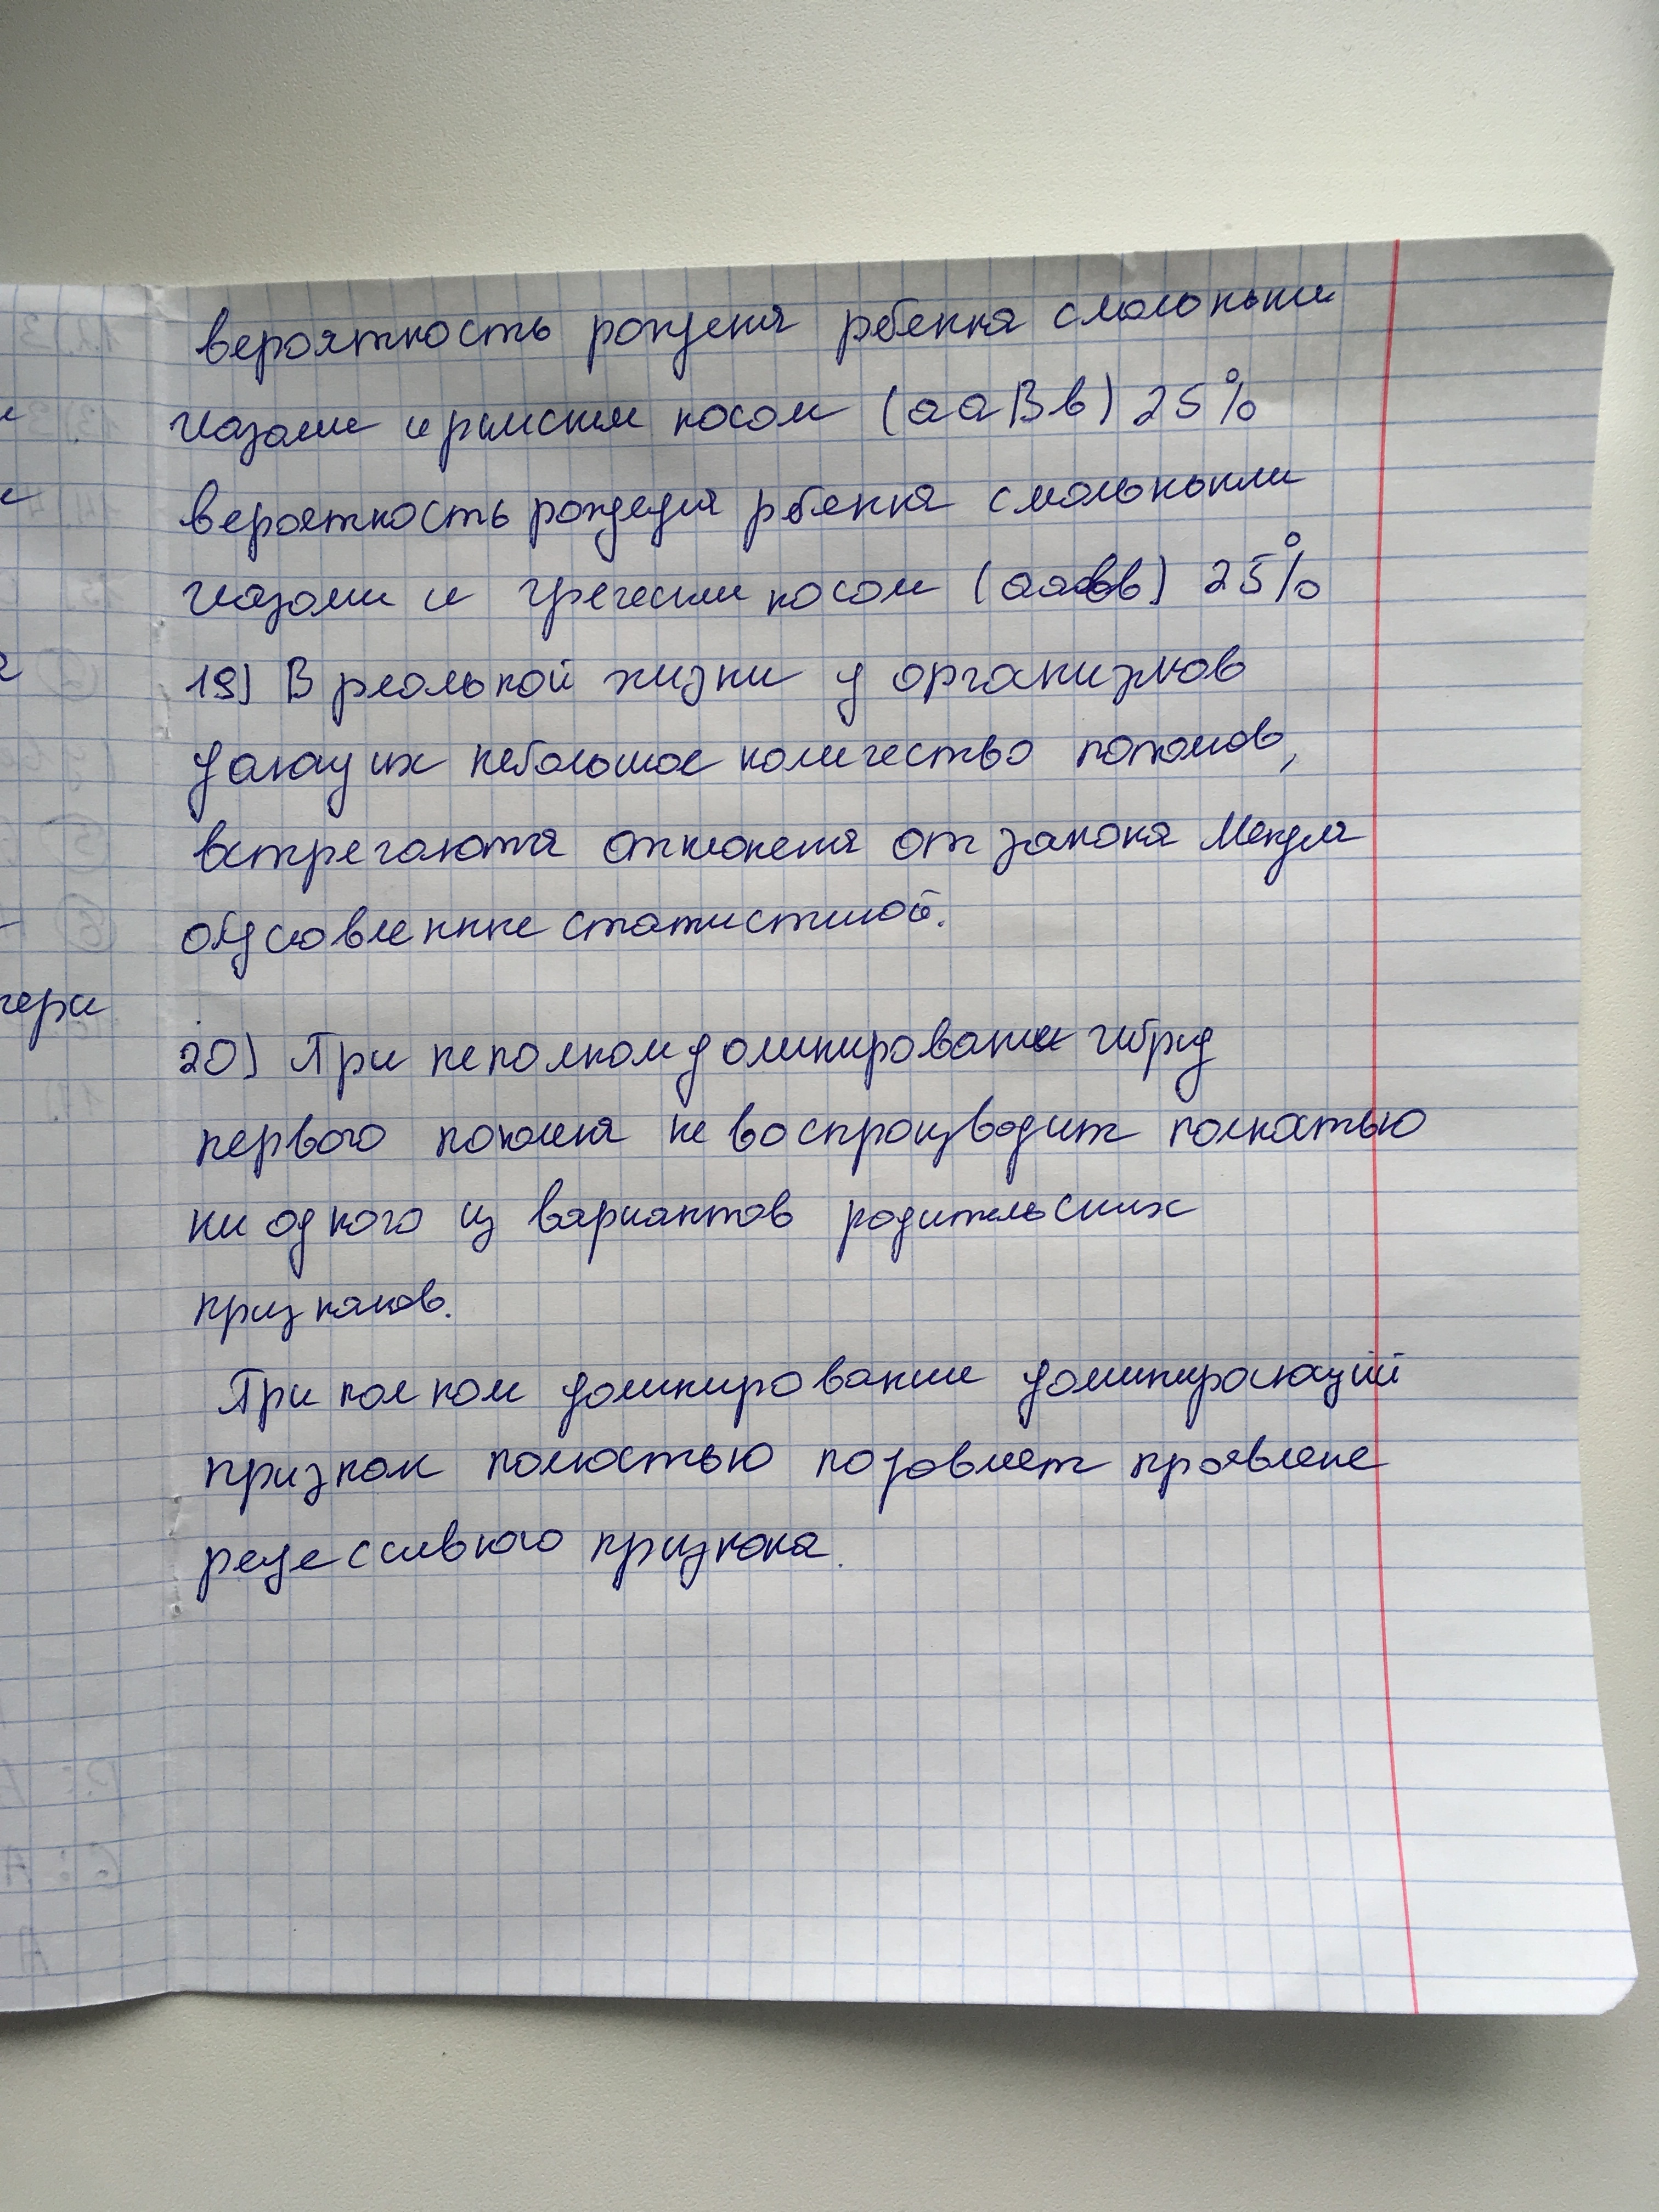 вероятность рождения ребенка с маленькими
глазами и римским носом (aaBв) 25%
вероятность рождения ребенка с маленькими
глазами и греческим носом (aaвв) 25%
19) В реальной жизни у организмов
дающих небольшое количество потомков,
встречаются отклонения от закона Менделя
обусловленные статистикой.
20) При неполном доминировании гибрид
первого поколения не воспроизводит полностью
ни одного из вариантов родительских
признаков.
При полном доминировании доминирующий
признак полностью подавляет проявление
рецессивного признака.